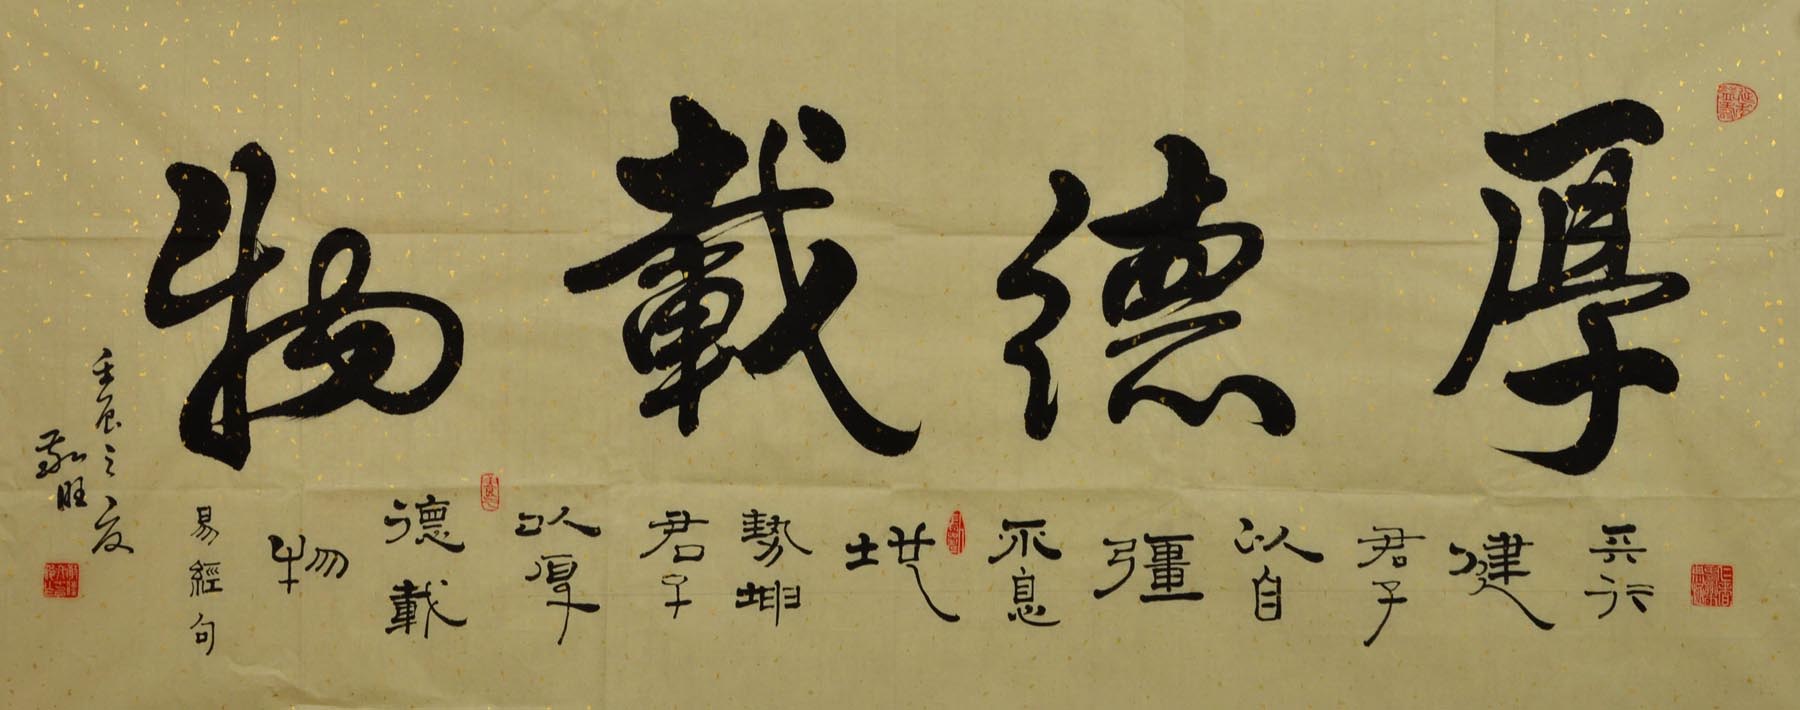 厚德載物
天行
健
君子
以自
彊
不息
地
勢坤
君子
以厚
德載
物
易經句
壬辰之夏
敬旺